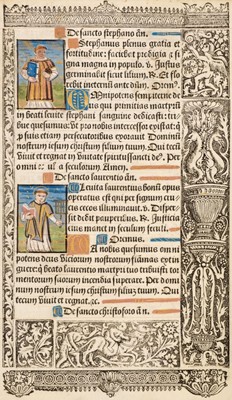 De sancto stephano añ.
Stephanus plenus gratia et
fortitudine: faciebat prodigia et si
gna magna in populo. ℣. Iustus
germinabit sicut lilium. ℟. Et flo
rebit ineternū ante dūm. Oremᵒ.
Omnipotens sempiterne de
us qui primitias martyrū
in beati levite stephani sanguine dedicasti: tri
bue quesumus: ut pro nobis intercessor existat:
p suis etiam persecutoribus exoravit Dominū
nostrum iesum christum filium tuum. Qui te
cū vivit et regnat in unitate spiritussancti deᵒ. Per
omnia secula seculorum. Amen.
De sancto laurentio añ.
Levita laurentius bonū opus
operatus est: qui per signum cru
cis cecos illuminavit. ℣. Disper
sit dedit pauperibus. ℟. Iusticia
eius manet in seculum seculi.
Oremus.
Da nobis quesumus omni
potens deus: viciorum nostrorum flāmas extin
guere: qui beato laurentio martyri tuo tribuisti tor
mentorum suorum incendia superare. Per domi
num nostrum iesum christum filium tuum. Qui
tecum vivit et regnat. &c.
De sancto christoforo añ.